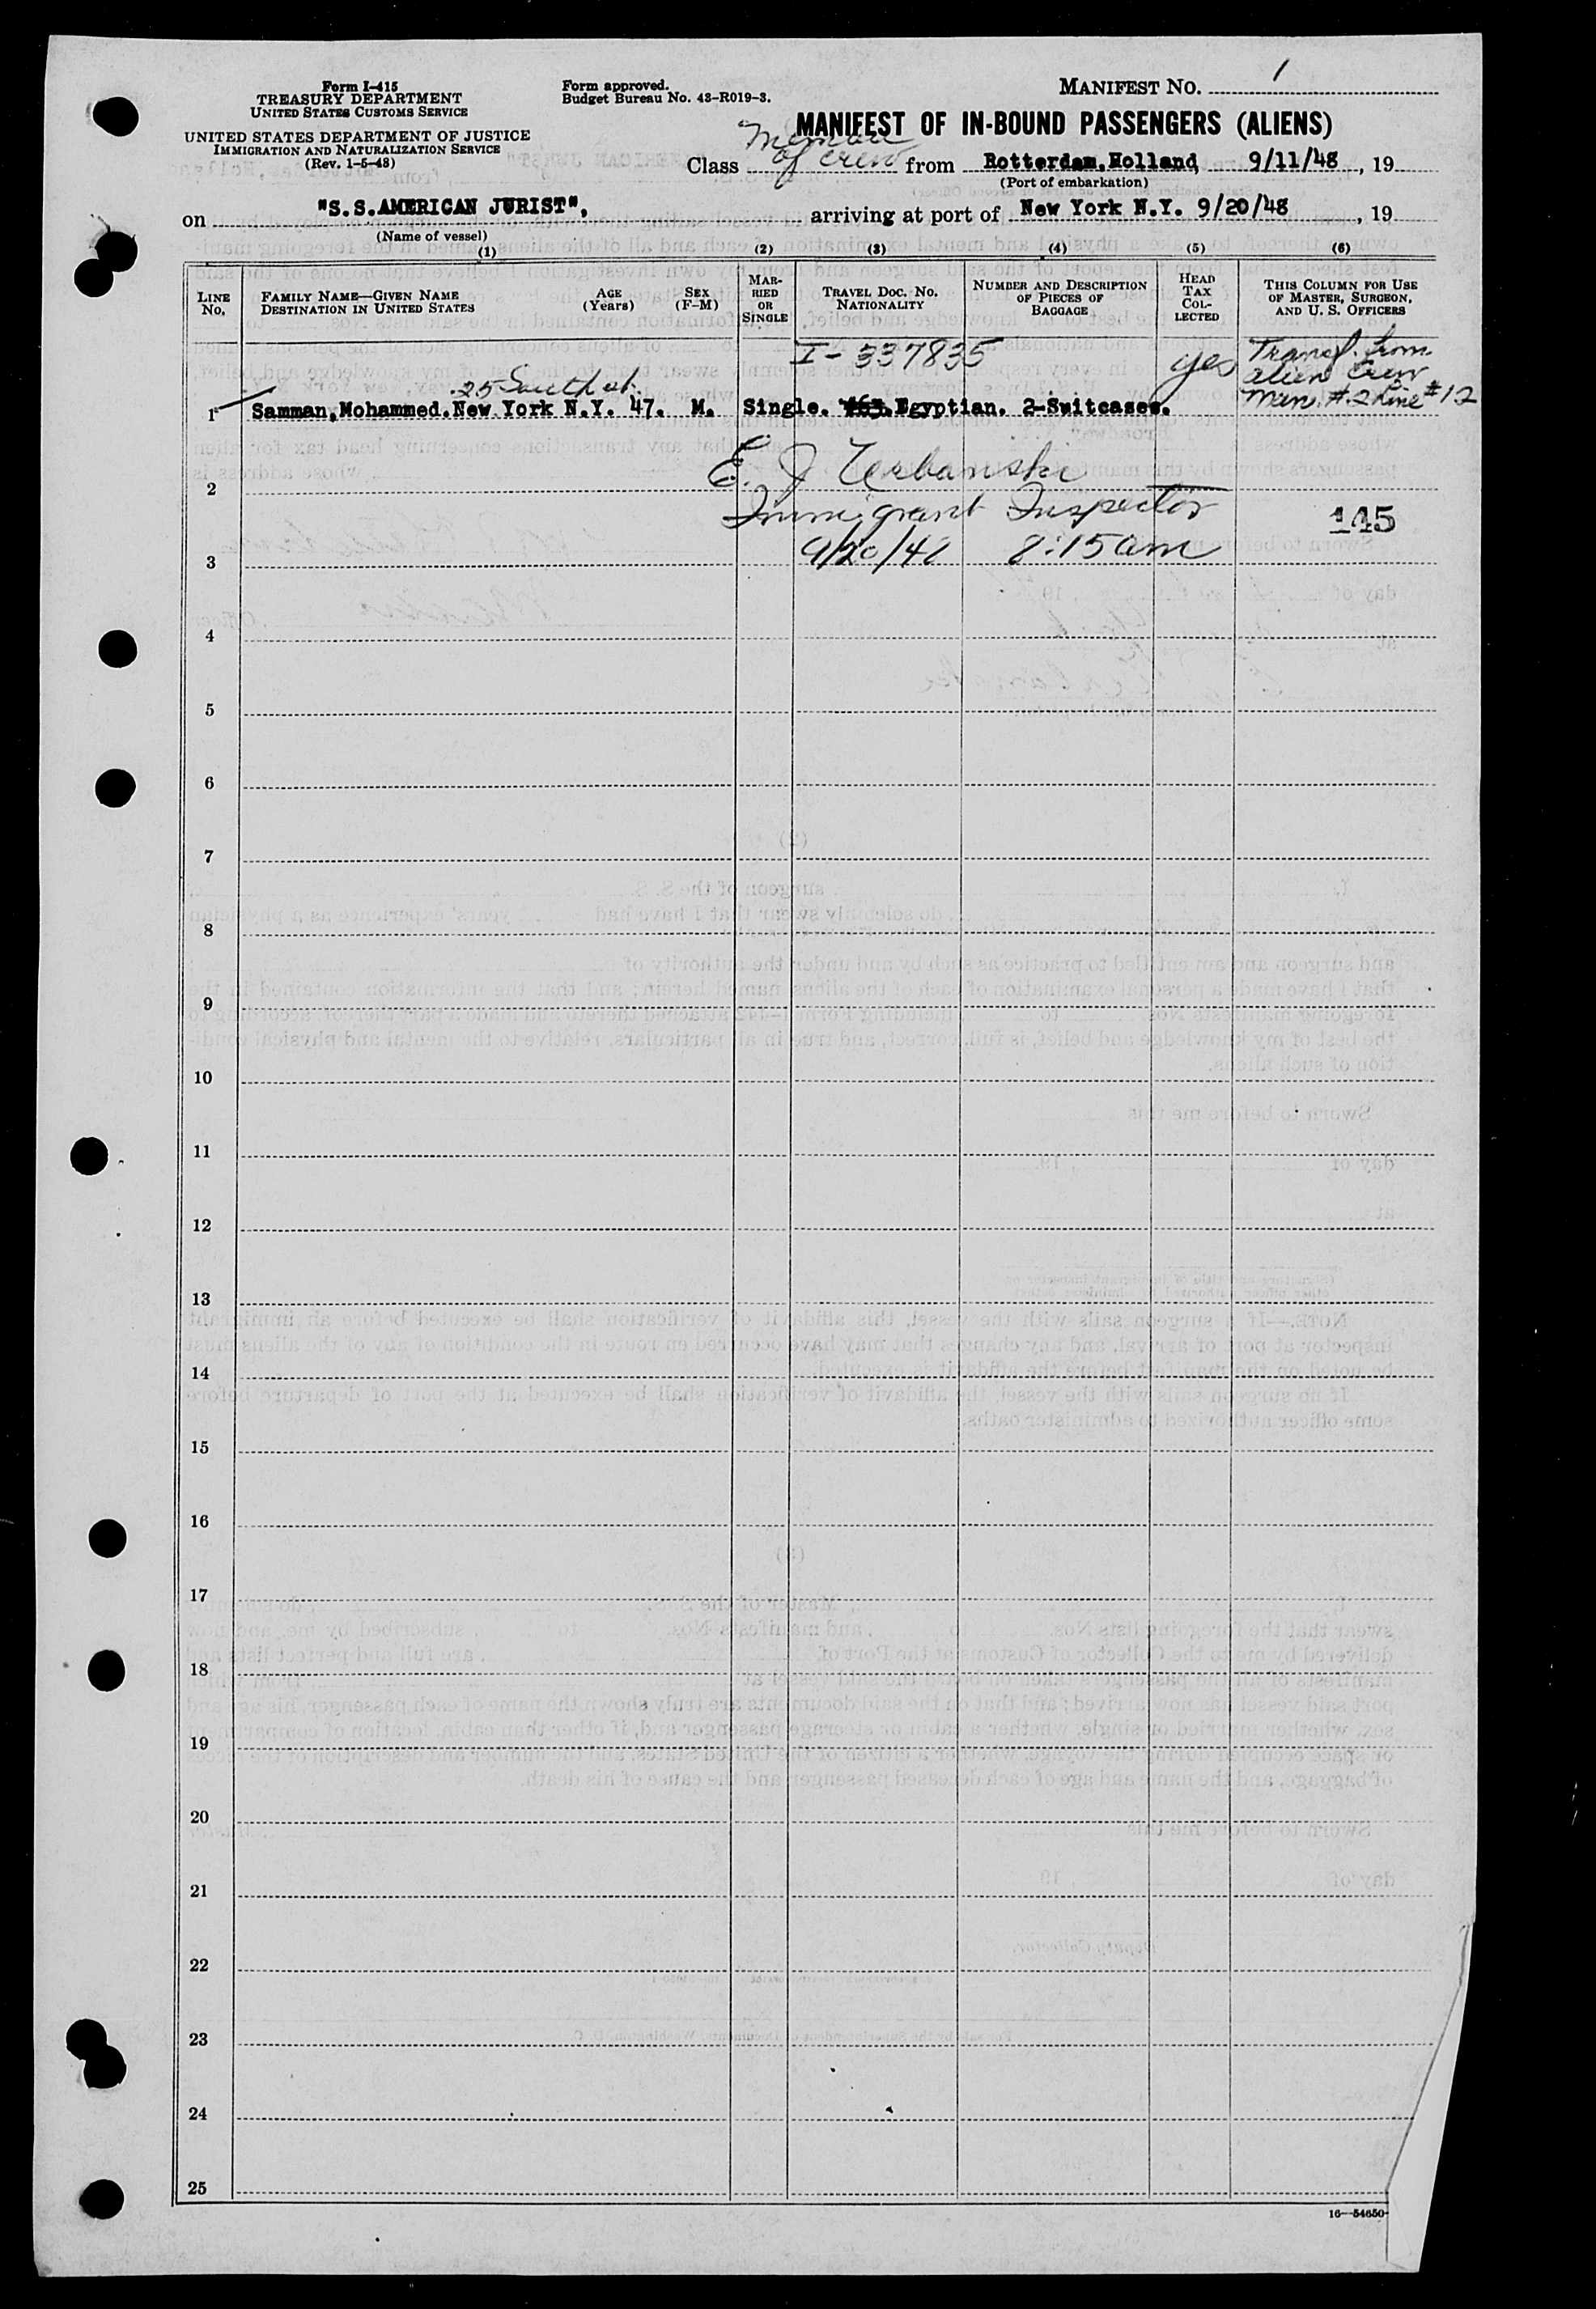 Form I-415
TREASURY DEPARTMENT
UNITED STATES CUSTOMS SERVICE
UNITED STATES DEPARTMENT OF JUSTICE
IMMIGRATION AND NATURALIZATION SERVICE
(Rev. 1-5-48)
Form approved.
Budget Bureau No. 43-R019-3.
MANIFEST NO. 1
MANIFEST OF IN-BOUND PASSENGERS (ALIENS)
Class of crew from Rotterdam, Holland 9/11/48, 19
(Port of embarkation)
on "S.S.AMERICAN JURIST", arriving at port of New York N.Y. 9/20/48, 19
(Name of vessel)
(1) (2) (3) (4) (5) (6)
LINE NO.
FAMILY NAME—GIVEN NAME
DESTINATION IN UNITED STATES
AGE (Years)
SEX (F-M)
MARRIED OR SINGLE
TRAVEL DOC. NO.
NATIONALITY
NUMBER AND DESCRIPTION OF PIECES OF BAGGAGE
HEAD TAX COLLECTED
THIS COLUMN FOR USE OF MASTER, SURGEON, AND U. S. OFFICERS
I-337835 yes Transf. from
alien Crew
25 South st. Man. #2 Line #12
1 Samman, Mohammed. New York N.Y. 47. M. Single. Egyptian. 2-Suitcases.
E. J Urbanski
2
Immigrant Inspector 145
9/20/48 8:15 am
3
4
5
6
7
8
9
10
11
12
13
14
15
16
17
18
19
20
21
22
23
24
25
16—54650